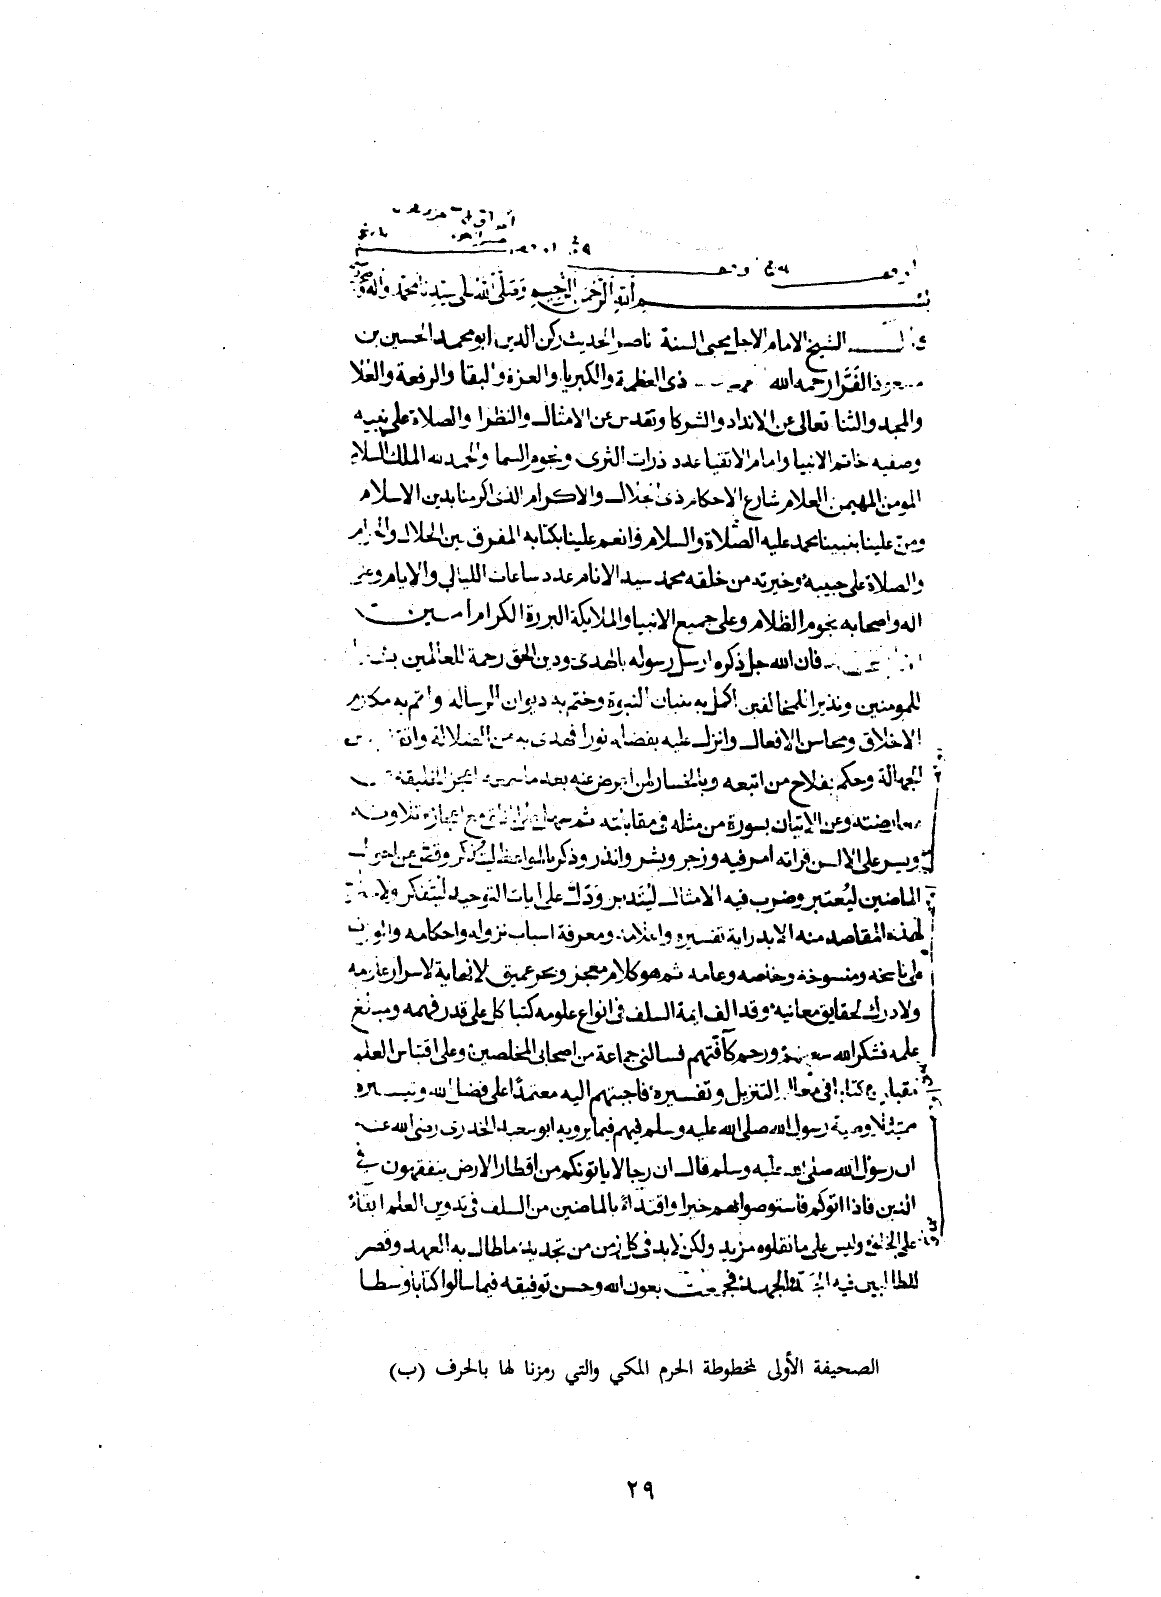 بسم الله الرحمن الرحيم وصلى الله على سيدنا محمد واله
قال الشيخ الامام الاجل محيى السنة ناصر الحديث ركن الدين ابو محمد الحسين بن
مسعود الفرا رحمه الله ذى العظمة والكبريا والعزة والبقا والرفعة والعلا
والمجد والثنا تعالى عن الانداد والشركا وتقدس عن الامثال والنظرا والصلاة على نبيه
وصفيه خاتم الانبيا وامام الاتقيا عدد ذرات الثرى ونجوم السما والحمد لله الملك السلام
المومن المهيمن العلام شارع الاحكام ذى الجلال والاكرام الذى اكرمنا بدين الاسلام
ومن علينا بنبينا محمد عليه الصلاة والسلام وانعم علينا بكتابه المفرق بين الحلال والحرام
والصلاة على حبيبه وخيرته من خلقه محمد سيد الانام عدد ساعات الليالي والايام وعلى
اله واصحابه نجوم الظلام وعلى جميع الانبيا والملايكة البررة الكرام امين
فان الله جل ذكره ارسل رسوله بالهدى ودين الحق رحمة للعالمين
للمومنين ونذيرا للمخالفين اكمل به بنيان النبوة وختم به ديوان الرساله واتم به مكارم
الاخلاق ومحاسن الافعال وانزل عليه بفضله نورا فهدى به من الضلالة وانقذ من
الجهالة وحكم بفلاح من اتبعه وبالخسار لمن اعرض عنه بعد ما سمعه اعجز الخليقة
معارضته وعن الاتيان بسورة من مثله فى مقابلته ثم سهل مع اعجازه تلاوته
ويسر على الالسن قراته امر فيه وزجر وبشر وانذر وذكر المواعظ ليتذكر وقص عن احوال
الماضين ليعتبر وضرب فيه الامثال ليتدبر ودل على ايات التوحيد ليتفكر ولا
لهذه المقاصد منه الا بدراية تفسيره واعلامه ومعرفة اسباب نزوله واحكامه والوقوف
على ناسخه ومنسوخه وخاصه وعامه ثم هو كلام معجز وبحر عميق لا نهاية لاسرار علومه
ولا درك لحقايق معانيه وقد الف ايمة السلف فى انواع علومه كتبا كل على قدر فهمه ومبلغ
علمه فشكر الله سعيهم ورحم كافتهم فسالنى جماعة من اصحابى المخلصين وعلى اقتباس العلم
مقبلين كتابا فى معالم التنزيل وتفسيره فاجبتهم اليه معتمدا على فضل الله وتيسيره
ممتثلا وصية رسول الله صلى الله عليه وسلم فيهم فيما يرويه ابو سعيد الخدرى رضى الله عنه
ان رسول الله صلى الله عليه وسلم قال ان رجالا ياتونكم من اقطار الارض يتفقهون في
الدين فاذا اتوكم فاستوصوا بهم خيرا واقتداء بالماضين من السلف فى تدوين العلم ابقاء
على الخلق وليس على ما نقلوه مزيد ولكن لابد فى كل زمن من تجديد ما طال به العهد وقصر
للطالبين فيه الجد والجهد فجمعت بعون الله وحسن توفيقه فيما سالوا كتابا وسطا
الصحيفة الأولى لمخطوطة الحرم المكي والتي رمزنا لها بالحرف (ب)
٢٩